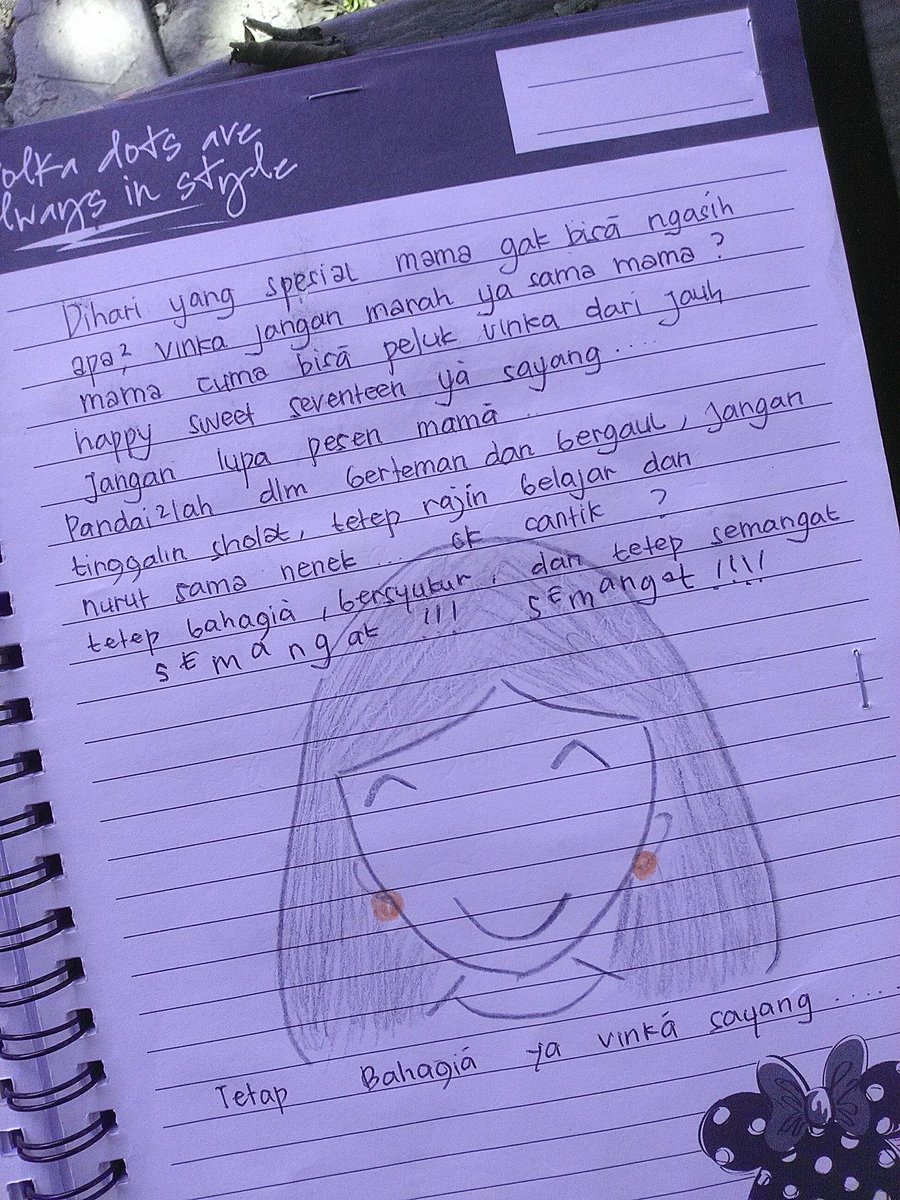 olka dots are
lways in style
Dihari yang spesial mama gak bisa ngasih
apa², vinka jangan marah ya sama mama?
mama cuma bisa peluk vinka dari jauh
happy sweet seventeen ya sayang.....
jangan lupa pesen mama..
Pandai²lah dlm berteman dan bergaul, jangan
tinggalin sholat, tetep rajin belajar dan
nurut sama nenek.... ok cantik?
tetep bahagia, bersyukur, dan tetep semangat
sEmangat !!! sEmangat !!!!
Tetap Bahagia ya vinka sayang......